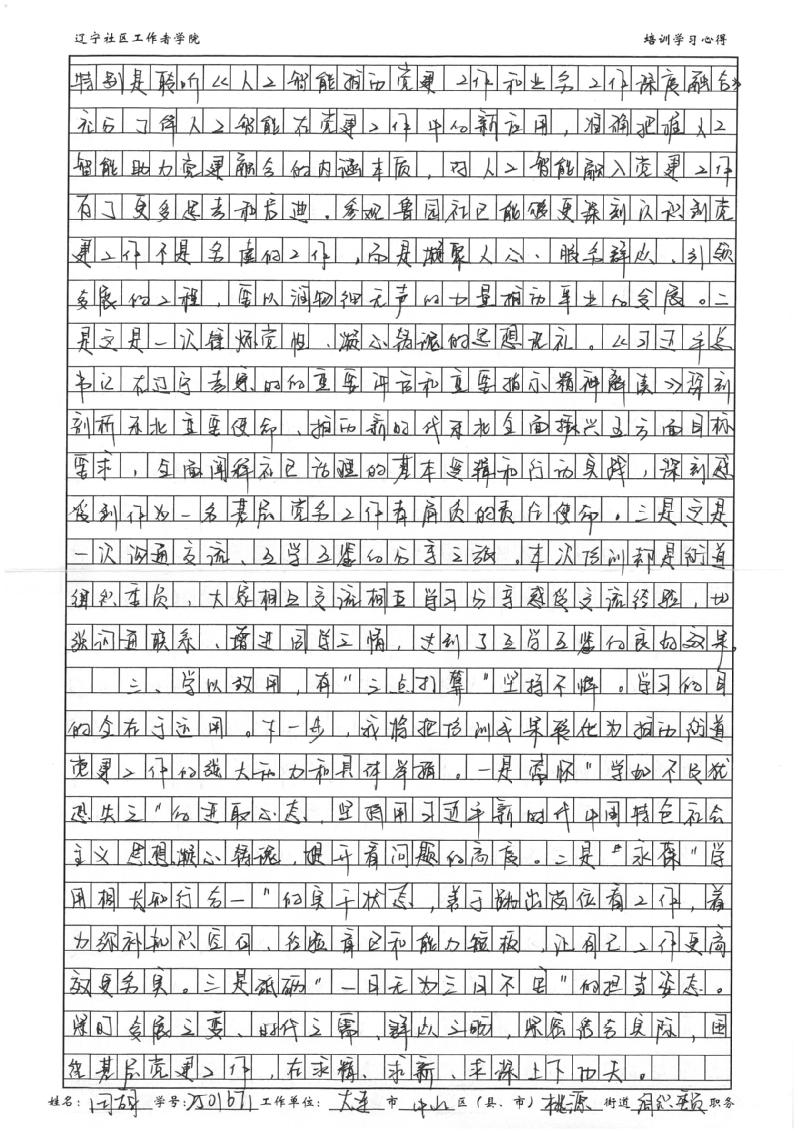 辽宁社区工作者学院 培训学习心得
特别是聆听《人工智能推动党建工作和业务工作深度融合》
充分了解人工智能在党建工作中的新应用，准确把握人工
智能助力党建融合的内涵本质，对人工智能融入党建工作
有了更多思考和启迪。参观鲁园社区能够更深刻认识到党
建工作不是务虚的工作，而是凝聚人心、服务群众、引领
发展的工程，要以润物细无声的力量推动事业的发展。二
是这是一次锤炼党性、凝心铸魂的思想洗礼。《习近平总
书记在辽宁考察时的重要讲话和重要指示精神解读》深刻
剖析东北重要使命、推动新时代东北全面振兴五方面目标
要求，全面阐释社区治理的基本逻辑和行动实践，深刻感
受到作为一名基层党务工作者肩负的责任使命。三是这是
一次沟通交流、互学互鉴的分享之旅。本次培训都是街道
组织委员，大家相互交流相互学习分享感受交流经验，加
强沟通联系、增进同学之情，达到了互学互鉴的良好效果。
三、学以致用，有“三点打算”坚持不懈。学习的目
的全在于运用。下一步，我将把培训成果转化为推动街道
党建工作的强大动力和具体举措。一是常怀“学如不及犹
恐失之”的进取心态，坚持用习近平新时代中国特色社会
主义思想凝心铸魂，提升看问题的高度。二是“永葆“学
用相长知行合一”的实干状态，善于跳出岗位看工作，着
力弥补知识空白、经验盲区和能力短板，让自己工作更高
效更务实。三是砥砺“一日无为三日不安”的担当姿态。
紧盯发展之变、时代之需、群众之盼，紧密结合实际，围
绕基层党建工作，在求精、求新、求深上下功夫。
姓名： 学号：2501071 工作单位：大连 市 中山 区（县、市）桃源 街道 组织委员 职务